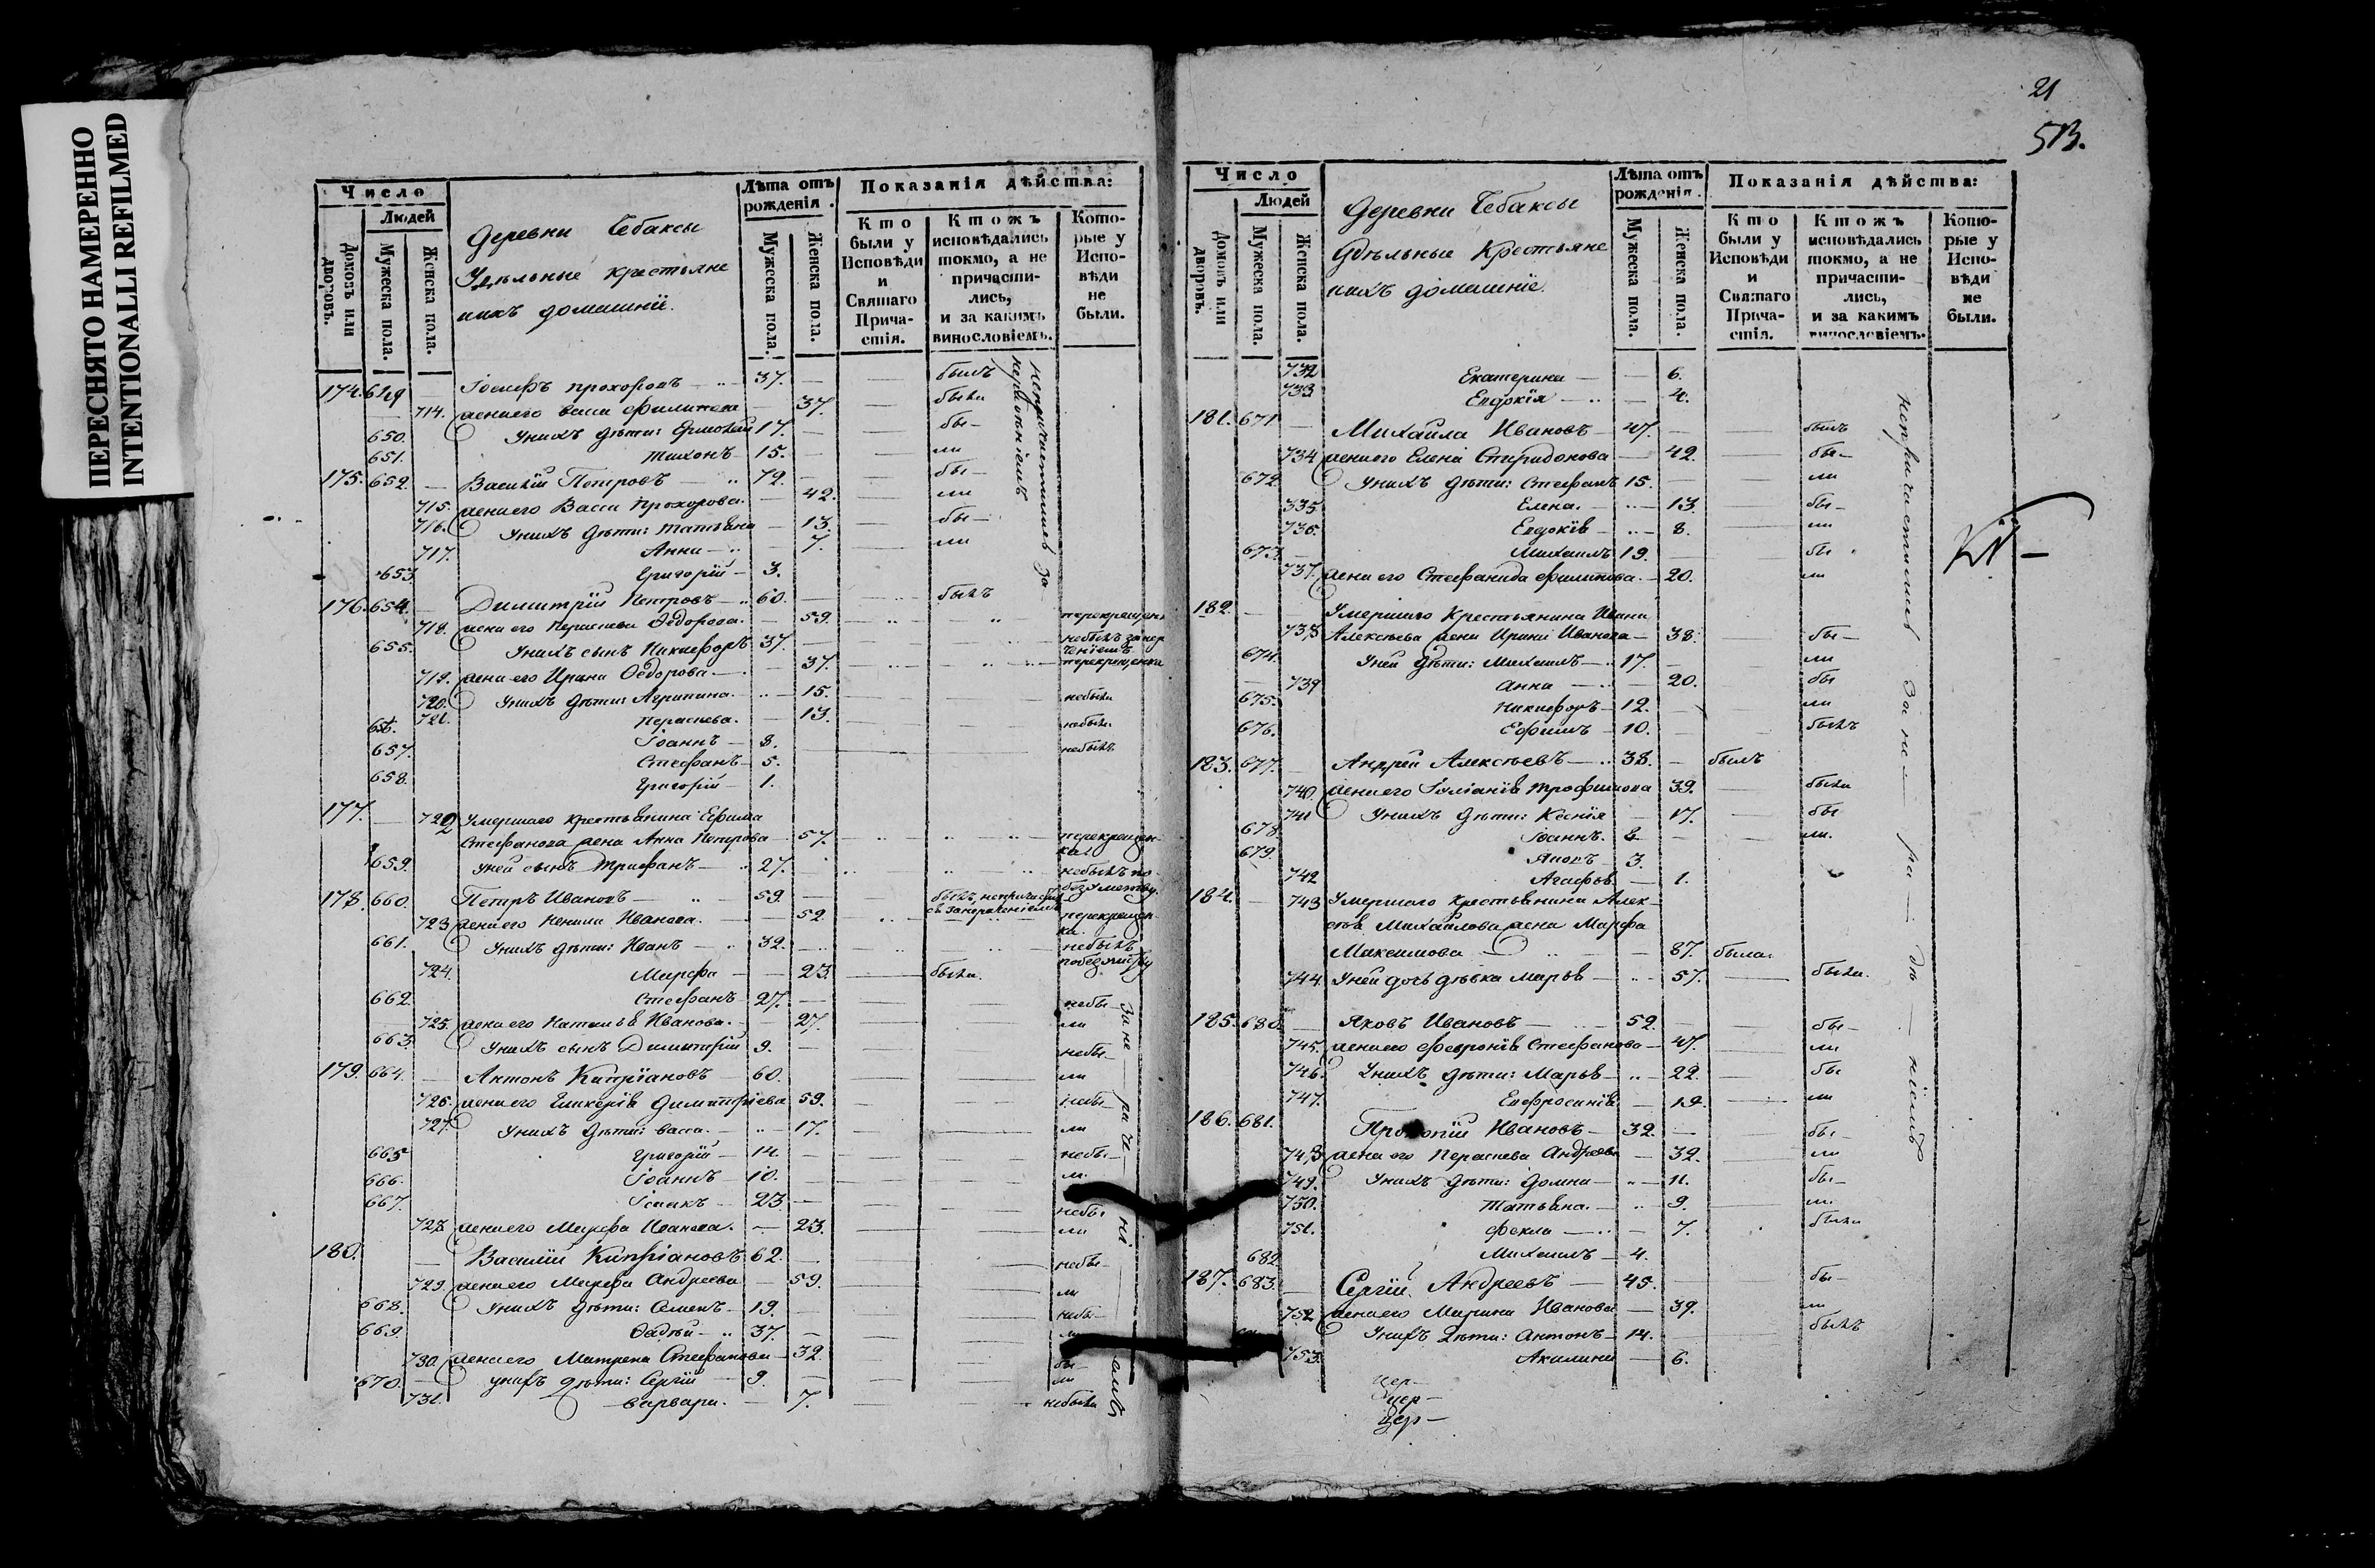 ПЕРЕСНЯТО НАМЕРЕННО
INTENTIONALLI REFILMED
Число
Людей
Домовъ или дворовъ.
Мужеска пола.
Женска пола.
Деревни Чебаксы
Удѣльные крестьяне
иихъ домашніи.
Лѣта отъ рожденія.
Мужеска пола.
Женска пола.
Показанія дѣйства:
Кто были у Исповѣди и Святаго Причастія.
Ктожъ исповѣдались токмо, а не причастились, и за какимъ винословіемъ.
Которые у Исповѣди не были.
174. 649 Іосифъ Прохоровъ 37. былъ
714. жена его Васса Филипова 37. была
650. У нихъ дѣти: Ермолай 17. бы-
651. Тихонъ 15. ли
175. 652. Василій Петровъ 72. бы-
715. жена его Васса Прохорова. 42. ли
716. У нихъ дѣти: Татьяна 13. бы-
717. Анна 7. ли
653. Григорій 3.
непричастились за нерадѣніемъ
176. 654. Димитрій Петровъ 60. былъ
718. жена его Параскева Ѳедорова. 59. перекрещен
655. У нихъ сынъ Никифоръ 37. небылъ за нерачѣніемъ
719. жена его Ирина Ѳедорова 37. перекрещенка
720. У нихъ дѣти: Агрипина. 15. небыла
721. Параскева. 13. небыла
656. Іоаннъ 8. небылъ
657. Стефанъ 5.
658. Григорій 1.
177. 722 Умершаго крестьянина Ефима
Стефанова жена Анна Петрова 57. перекрещенка.
659. У ней сынъ Трифанъ 27. небылъ по безумству.
178. 660. Петръ Ивановъ 59. былъ, непричастился за нерачѣніемъ
723 жена его Ксенія Иванова. 52. перекрещенка.
661. У нихъ дѣти: Иванъ 32. небылъ по безумству
724. Марфа 23. была.
662. Стефанъ 27. небы-
725. жена его Наталья Иванова. 27. ли
663. У нихъ сынъ Димитрій 9. небы-
179. 664. Антонъ Кипріановъ 60. ли
726. жена его Гликерія Димитріева 59. небы-
727. У нихъ дѣти: Васса. 17. ли
665 Григорій 14. небы-
666. Іоаннъ 10. ли
667. Ісаакъ 23.
728. жена его Марфа Иванова. 23. небы-
ли
180. Василій Кипріановъ 62. небы-
729. жена его Марфа Андреева 59. ли
668. У нихъ дѣти: Семенъ 19. небы-
669. Ѳадѣй 37. ли
730. жена его Матрена Стефанова 32. бы-
670 У нихъ дѣти: Сергій 9. ли
731. Варвара. 7. небыла
за нерачѣніемъ
21
513.
Число
Людей
Домовъ или дворовъ.
Мужеска пола.
Женска пола.
Деревни Чебаксы
Удѣльные Крестьяне
иихъ домашніе.
Лѣта отъ рожденія.
Мужеска пола.
Женска пола.
Показанія дѣйства:
Кто были у Исповѣди и Святаго Причастія.
Ктожъ исповѣдались токмо, а не причастились, и за какимъ винословіемъ.
Которые у Исповѣди не были.
732 Екатерина 6.
733 Евдокія 4.
181. 671 Михайла Ивановъ 47. былъ
734 жена его Елена Спиридонова 42. бы-
672. У нихъ дѣти: Стефанъ 15. ли
335 Елена. 13. бы-
736. Евдокія 8. ли
673. Михаилъ 19. бы
737. жена его Стефанида Филипова. 20. ли
182. Умершаго Крестьянина Ивана
738 Алексѣева жена Ирина Иванова 38. бы-
674. У ней дѣти: Михаилъ 17. ли
739 Анна 20. бы
675. Никифоръ 12. ли
676. Ефимъ 10. былъ
183. 677. Андрей Алексѣевъ 38. былъ
740. жена его Іуліанія Трофимова 39. была
741 У нихъ дѣти: Ксенія 17. бы
678. Іоаннъ. 8 ли.
679. Яковъ 3.
742 Агафья 1.
184. 743 Умершаго крестьянина Алексѣя Михайлова жена Марфа
Максимова 87. была.
744. У ней дочь дѣвка Марья 57. была.
185. 680. Яковъ Ивановъ 52. бы-
745. жена его Февронія Стефанова 47. ли
746. У нихъ дѣти: Марья 22. бы
747. Евфросинія 19. ли
186. 681. Прокопій Ивановъ 32. бы-
748 жена его Параскева Андреева 32. ли
749. У нихъ дѣти: Домна 11. бы-
750. Татьяна. 9. ли
751. Фекла 7. была
682. Михаилъ 4.
187. 683. Сергій Андреевъ 45. бы-
752 жена его Марина Иванова 39. ли
У нихъ дѣти: Антонъ 14. былъ
753. Акилина 6.
непричастились за нерадѣніемъ
цер-
цер-
цер-